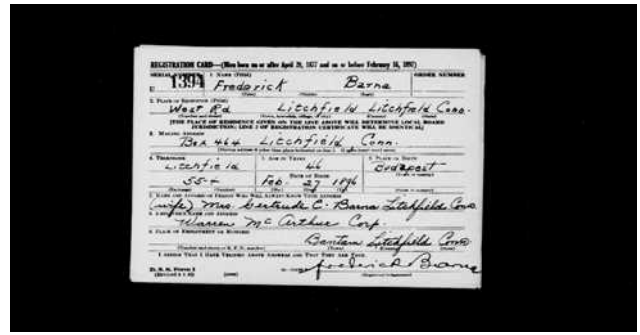 REGISTRATION CARD—(Men born on or after April 28, 1877 and on or before February 16, 1897)
SERIAL NUMBER 1. NAME (Print) ORDER NUMBER
U 1394 Frederick Barna
2. PLACE OF RESIDENCE (Print)
West Rd Litchfield Litchfield Conn.
[THE PLACE OF RESIDENCE GIVEN ON THE LINE ABOVE WILL DETERMINE LOCAL BOARD
JURISDICTION; LINE 2 OF REGISTRATION CERTIFICATE WILL BE IDENTICAL]
3. MAILING ADDRESS
Box 464 Litchfield Conn.
4. TELEPHONE 5. AGE IN YEARS 6. PLACE OF BIRTH
Litchfield 46 Budapest
DATE OF BIRTH
Feb. 27
7. NAME AND ADDRESS OF PERSON WHO WILL ALWAYS KNOW YOUR ADDRESS
(wife) Mrs. Gertrude C. Barna Litchfield Conn
8. EMPLOYER'S NAME AND ADDRESS
Warren McArthur Corp.
9. PLACE OF EMPLOYMENT OR BUSINESS
Bantam Litchfield Conn
I AFFIRM THAT I HAVE VERIFIED ABOVE ANSWERS AND THAT THEY ARE TRUE.
Frederick Barna